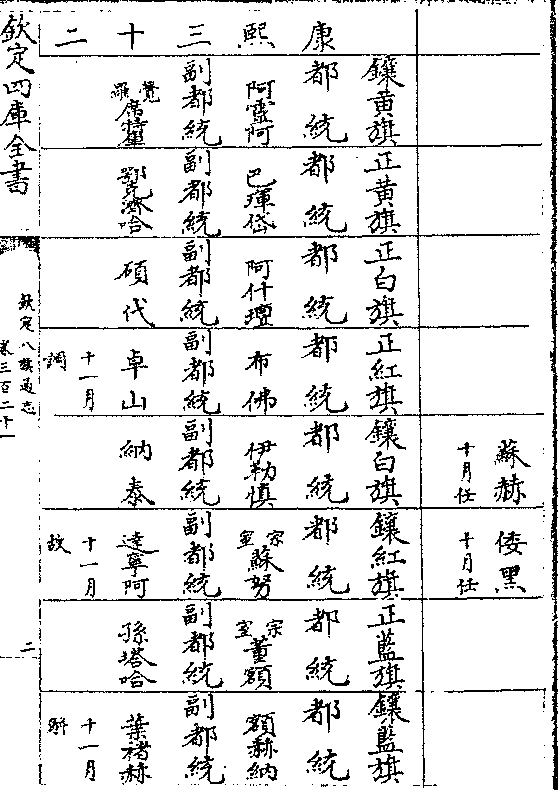 蘇赫
倭黑
十月任
十月任
鑲黃旗
正黃旗
正白旗
正紅旗
鑲白旗
鑲紅旗
正藍旗
鑲藍旗
康
都統
都統
都統
都統
都統
都統
都統
都統
熙
阿靈阿
巴琿岱
阿什壇
布佛
伊勒慎
宗室蘇努
宗室董額
額赫納
三
副都統
副都統
副都統
副都統
副都統
副都統
副都統
副都統
十
覺羅席特
鄂克濟哈
碩代
卓山
納泰
達寧阿
孫塔哈
葉褚赫
二
十一月
調
十一月
故
十一月
解
欽定四庫全書
欽定八旗通志
卷三百二十一
二